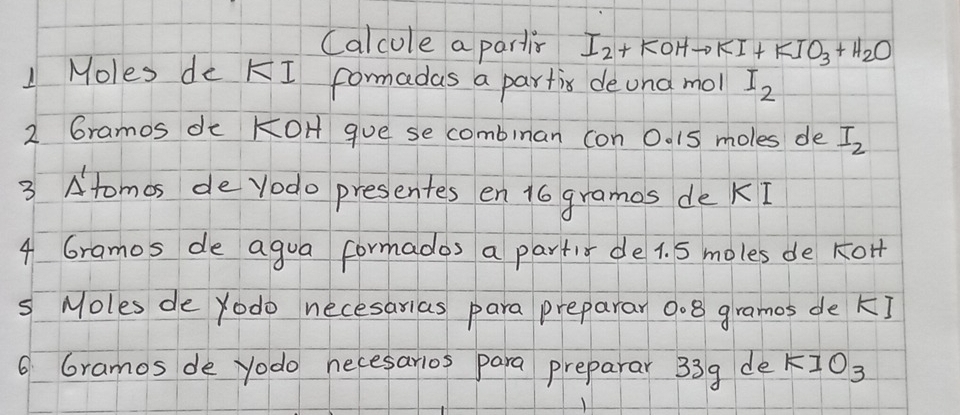 Calcule a partir I2 + KOH → KI + KIO3 + H2O
1 Moles de KI formadas a partir de una mol I2
2 Gramos de KOH que se combinan con 0.15 moles de I2
3 Átomos de Yodo presentes en 16 gramos de KI
4 Gramos de agua formados a partir de 1.5 moles de KOH
5 Moles de Yodo necesarias para preparar 0.8 gramos de KI
6 Gramos de yodo necesarios para preparar 33g de KIO3